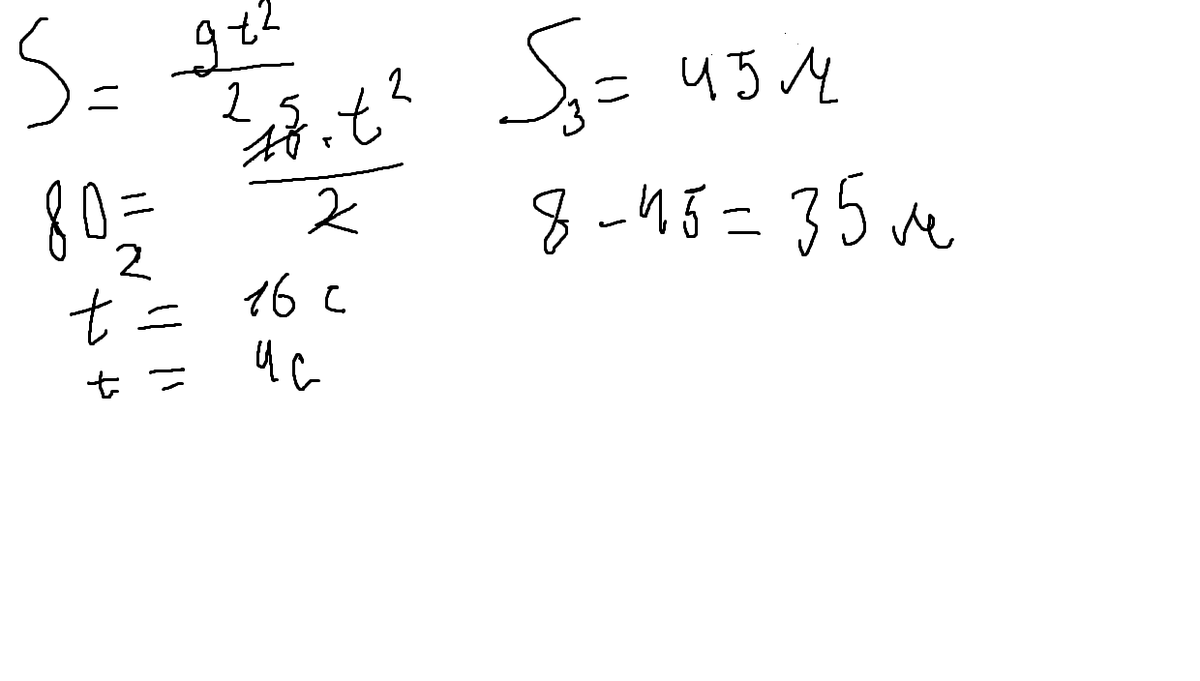 S = gt²/2
80 = 10̶ 5 · t²/2̶
t² = 16 с
t = 4 с
S₃ = 45 м
8 - 45 = 35 м